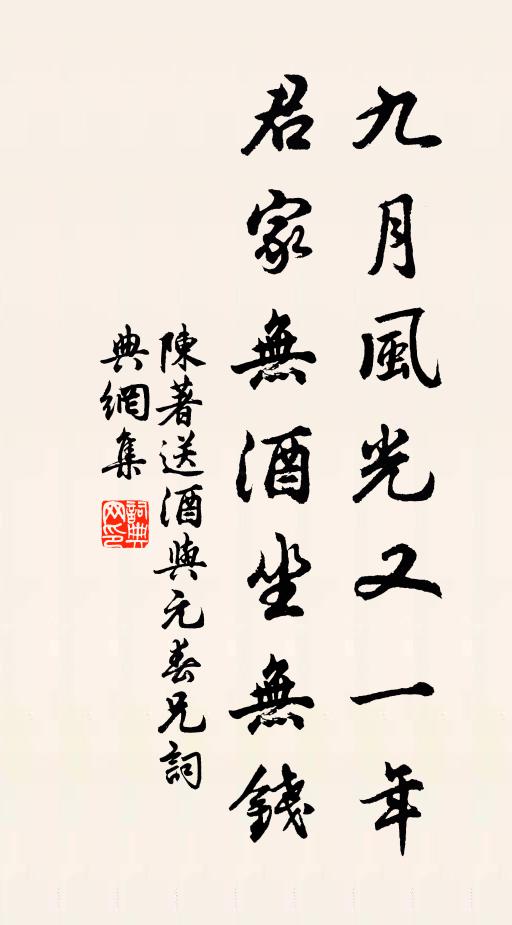 九月風光又一年
君家無酒坐無錢
陳著送酒與元春兄詞
典網集
詞典網印